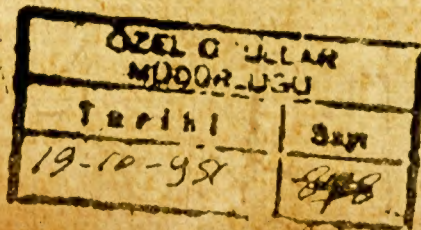 ÖZEL O ULLAR
MÜDÜR_ÜĞÜ
Tarihi Sayı
19-10-951